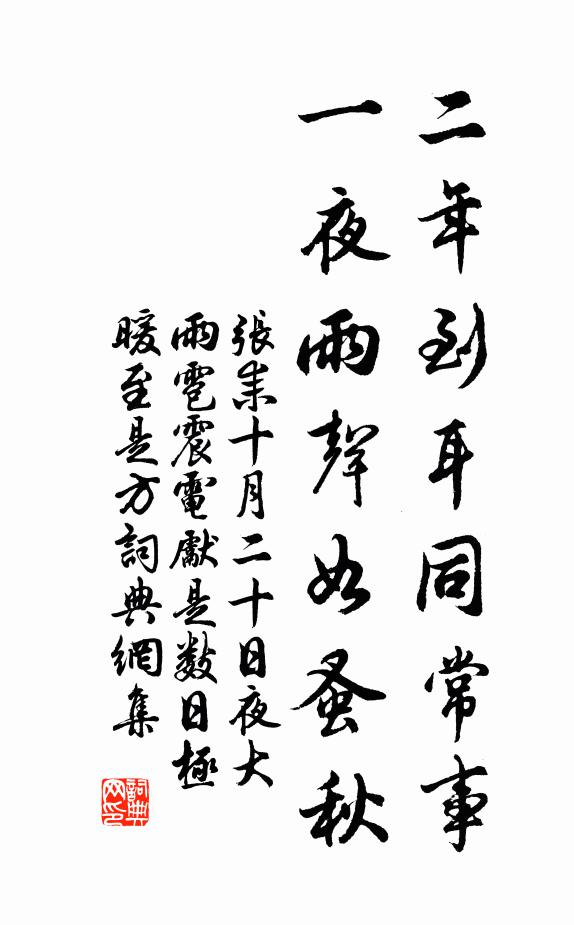 二年到耳同常事
一夜雨聲如蚤秋
張耒十月二十日夜大
雨雹震電獻是數日極
暖至是方詞典網集
詞典
网印